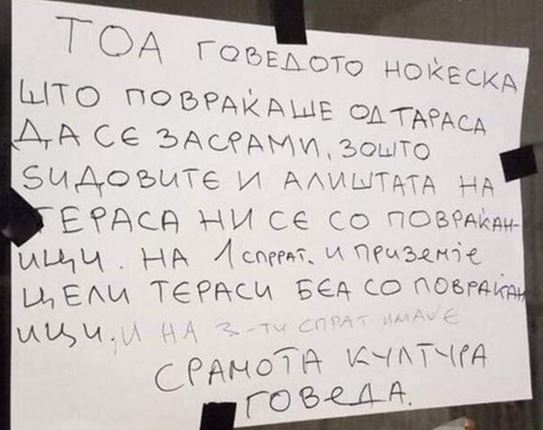 ТОА ГОВЕДОТО НОЌЕСКА
ШТО ПОВРАЌАШЕ ОД ТАРАСА
ДА СЕ ЗАСРАМИ, ЗОШТО
ЅИДОВИТЕ И АЛИШТАТА НА
ТЕРАСА НИ СЕ СО ПОВРАЌАН-
ИЦИ. НА 1 СПРРАТ. И ПРИЗЕМЈЕ
ЦЕЛИ ТЕРАСИ БЕА СО ПОВРАЌАН
ИЦИ, И НА 3-ТИ СПРАТ ИМАШЕ
СРАМОТА КУЛТУРА
ГОВЕДА.